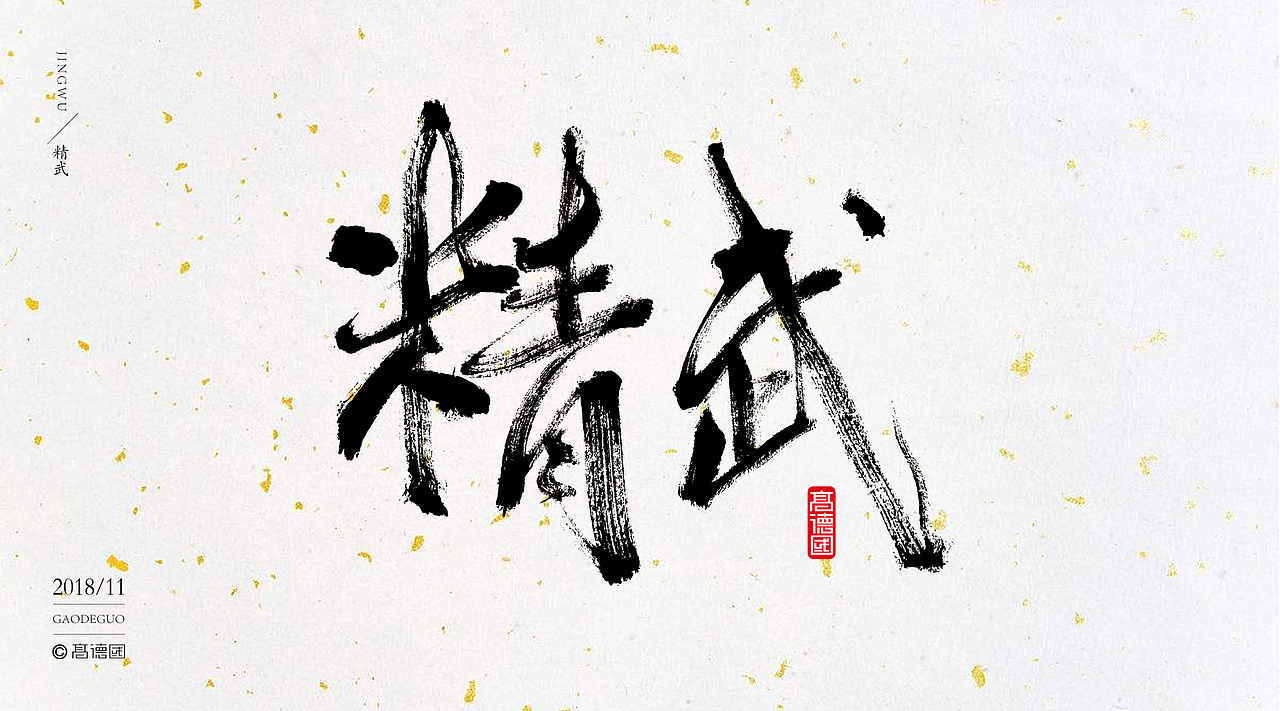 JINGWU
精武
精武
髙德國
2018/11
GAODEGUO
©髙德國